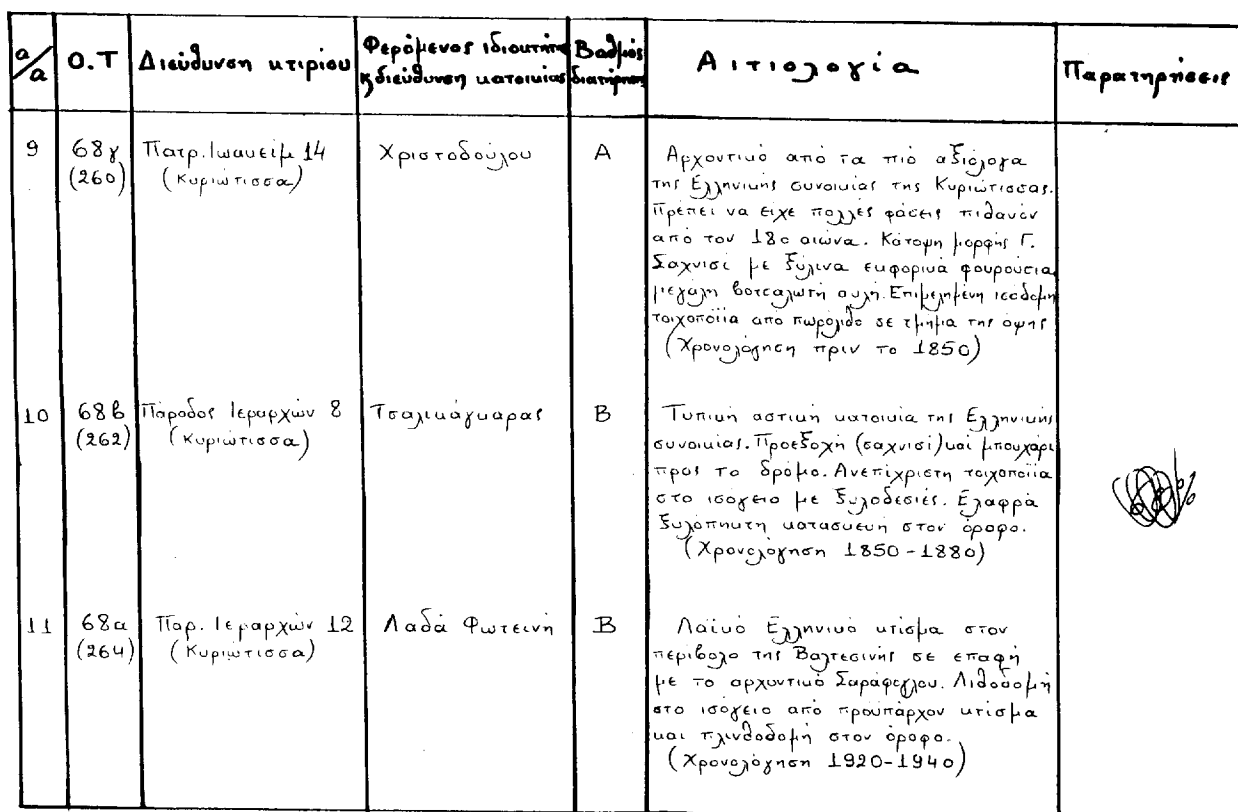 α/α
Ο.Τ
Διεύθυνση κτιρίου
Φερόμενος ιδιοκτήτης
κ διεύθυνση κατοικίας
Βαθμός
διατήρησης
Αιτιολογία
Παρατηρήσεις
9
68γ
(260)
Πατρ. Ιωακείμ 14
(Κυριώτισσα)
Χριστοδούλου
Α
Αρχοντικό από τα πιό αξιόλογα
της Ελληνικής συνοικίας της Κυριώτισσας.
Πρέπει να είχε πολλές φάσεις πιθανόν
από τον 18ο αιώνα. Κάτοψη μορφής Γ.
Σαχνισί με ξύλινα ευφορικά φουρούσια
μεγάλη βοτσαλωτή αυλή. Επιμελημένη ισόδομη
τοιχοποιία από πωρόλιθο σε τμήμα της όψης
(Χρονολόγηση πριν το 1850)
10
68β
(262)
Πάροδος Ιεραρχών 8
(Κυριώτισσα)
Τσαλικάγκαρας
Β
Τυπική αστική κατοικία της Ελληνικής
συνοικίας. Προεξοχή (σαχνισί) και μπουχάρι
προς το δρόμο. Ανεπίχριστη τοιχοποιία
στο ισόγειο με ξυλοδεσιές. Ελαφρά
ξυλόπηκτη κατασκευή στον όροφο.
(Χρονολόγηση 1850-1880)
11
68α
(264)
Παρ. Ιεραρχών 12
(Κυριώτισσα)
Λαδά Φωτεινή
Β
Λαϊκό Ελληνικό κτίσμα στον
περίβολο της Βαλτεσινής σε επαφή
με το αρχοντικό Σαράφογλου. Λιθοδομή
στο ισόγειο από προϋπάρχον κτίσμα
και πλινθοδομή στον όροφο.
(Χρονολόγηση 1920-1940)